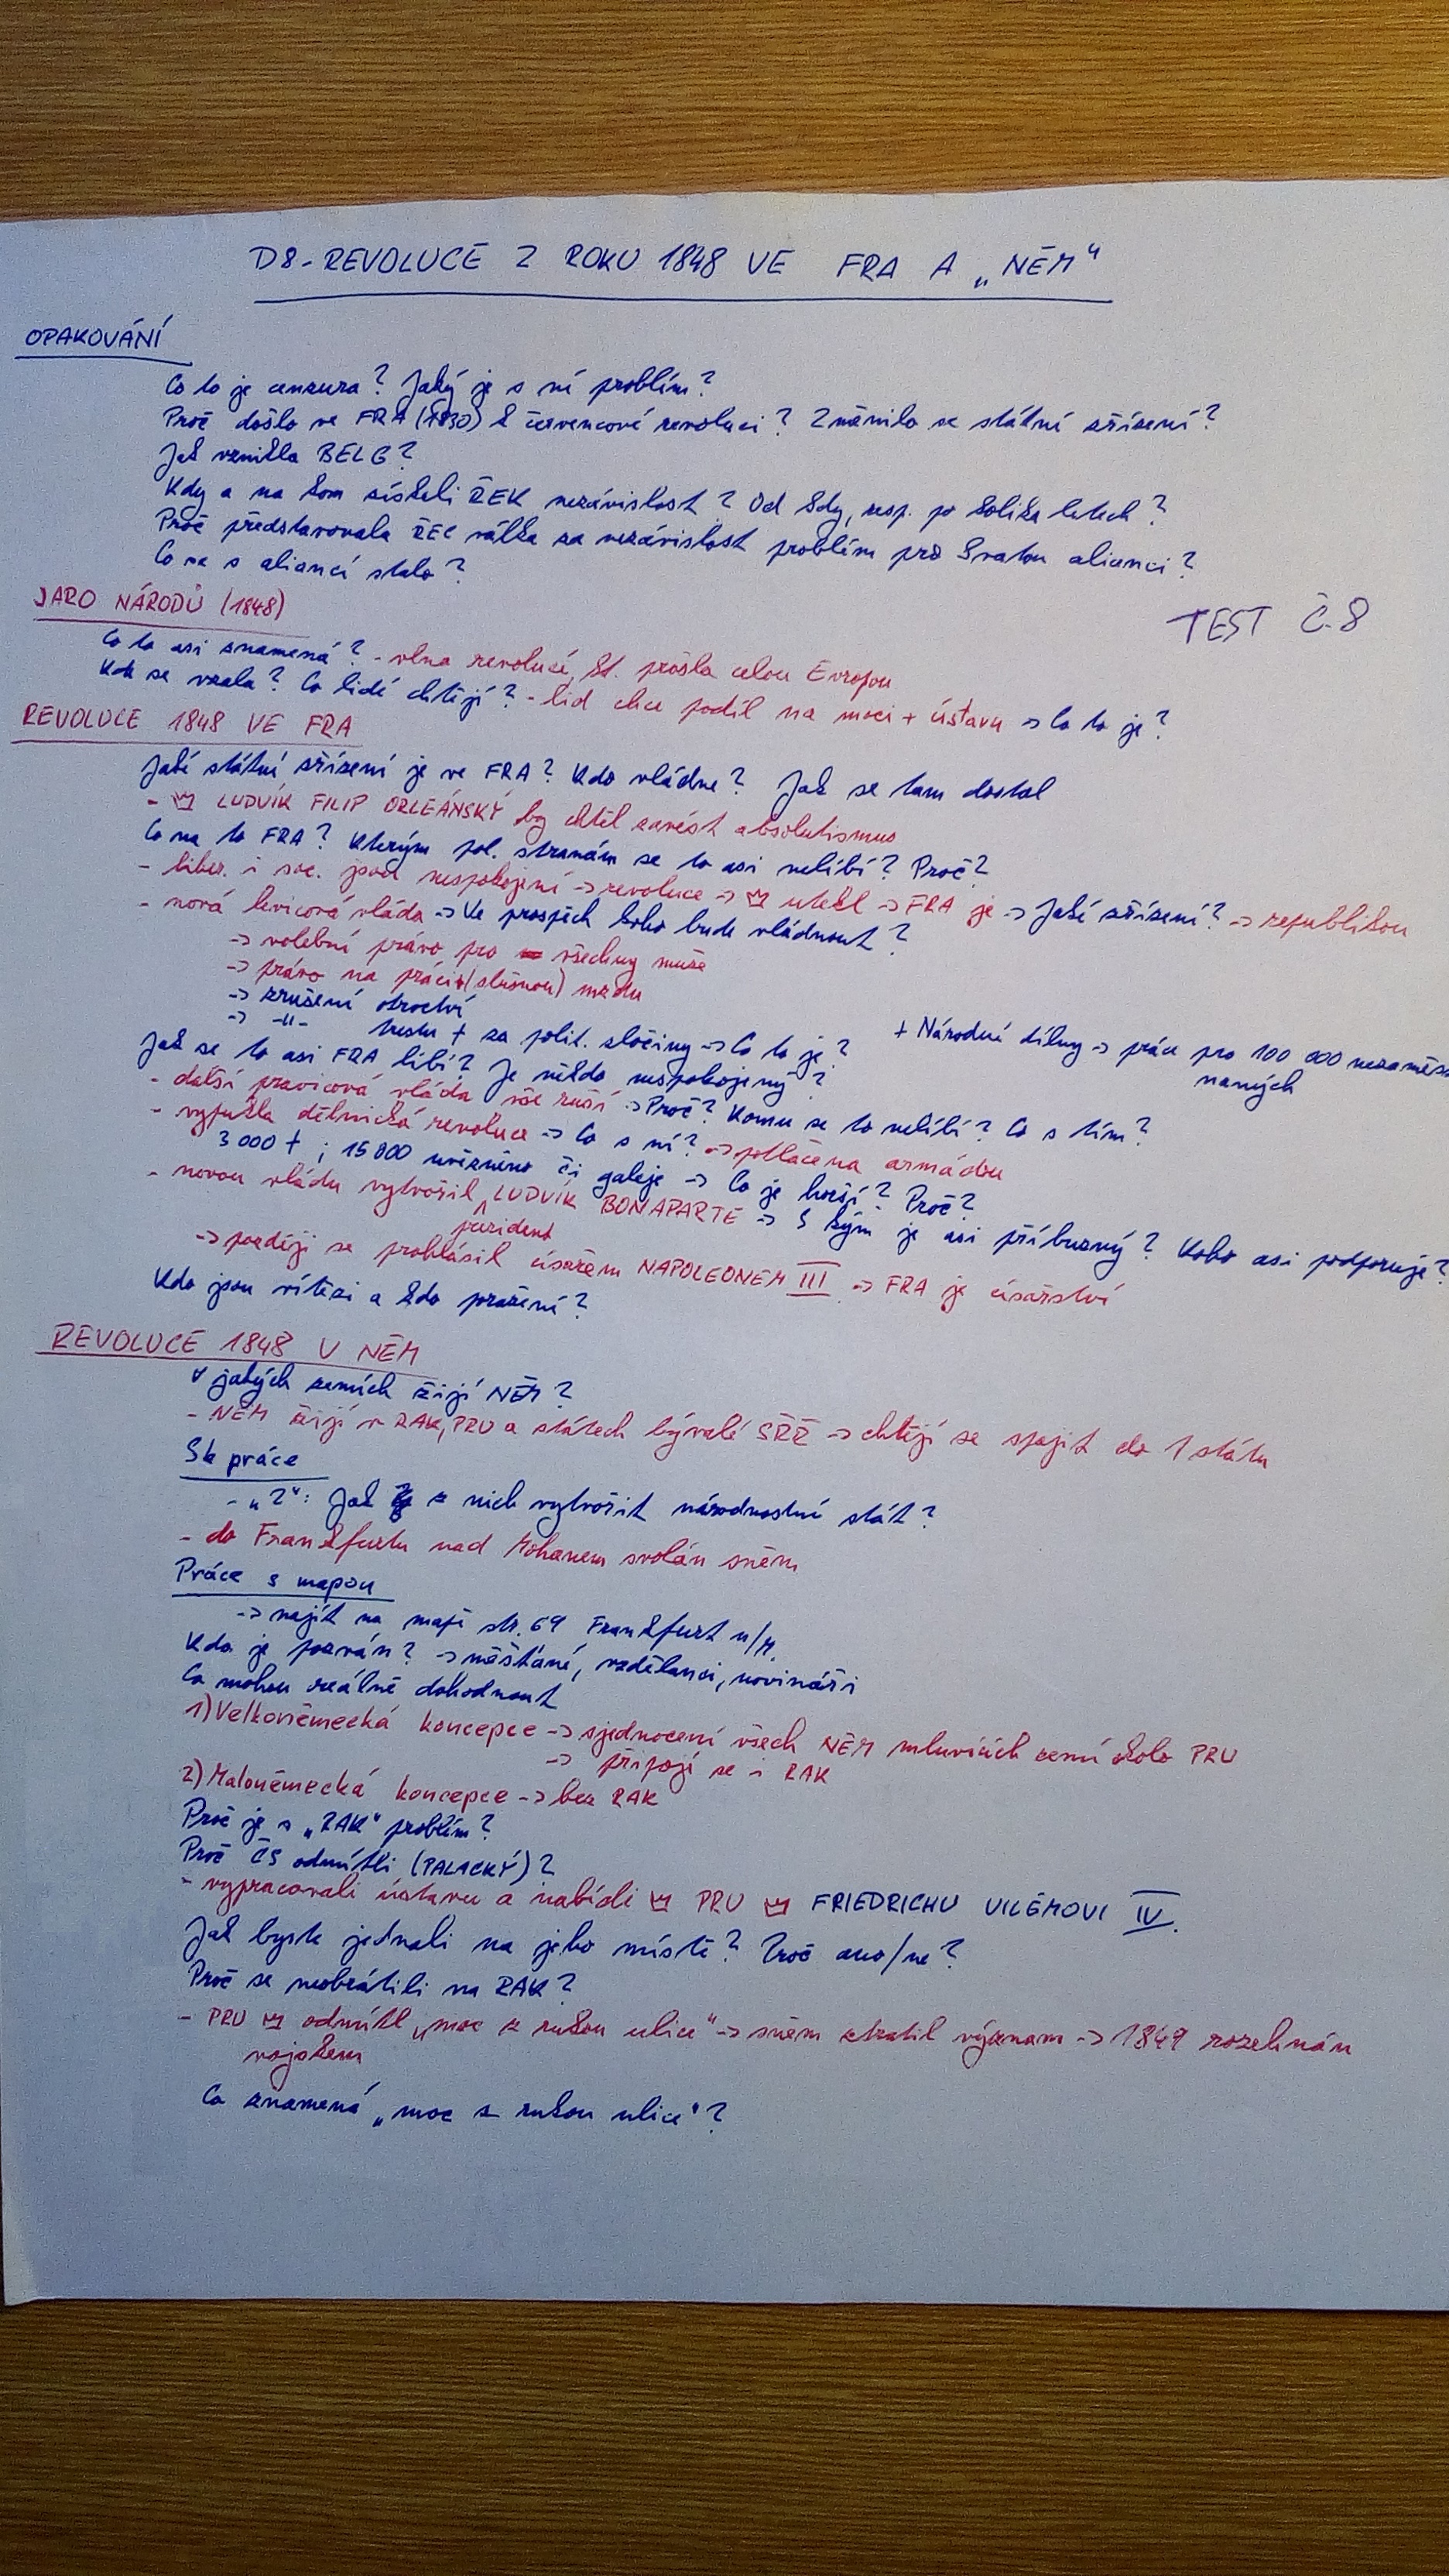 D8 - REVOLUCE Z ROKU 1848 VE FRA A „NĚM“
OPAKOVÁNÍ
Co to je cenzura? Jaký je s ní problém?
Proč došlo ve FRA (1830) k červencové revoluci? Změnilo se státní zřízení?
Jak vznikla BELG?
Kdy a na kom získali ŘEK nezávislost? Od kdy, resp. po kolika letech?
Proč představovala ŘEC válka za nezávislost problém pro Svatou alianci?
Co se s aliancí stalo?
TEST Č. 8
JARO NÁRODŮ (1848)
Co to asi znamená? - vlna revolucí, kt. prošla celou Evropou
Kde se vzala? Co lidé chtějí? - lid chce podíl na moci + ústavu -> Co to je?
REVOLUCE 1848 VE FRA
Jaké státní zřízení je ve FRA? Kdo vládne? Jak se tam dostal
- LUDVÍK FILIP ORLEÁNSKÝ by chtěl zavést absolutismus
Co na to FRA? Kterým pol. stranám se to asi nelíbí? Proč?
- liber. i soc. jsou nespokojení -> revoluce -> utekl -> FRA je -> Jaké zřízení? -> republikou
- nová levicová vláda -> Ve prospěch koho bude vládnout?
-> volební právo pro všechny muže
-> právo na práci + (slušnou) mzdu
-> zrušení otroctví
-> -||- trestu † za polit. zločiny -> Co to je?
+ Národní dílny -> práce pro 100 000 nezaměst-
naných
Jak se to asi FRA líbí? Je někdo nespokojený?
- další pravicová vláda vše ruší -> Proč? Komu se to nelíbí? Co s tím?
- vypukla dělnická revoluce -> Co s ní? -> potlačena armádou
3 000 † ; 15 000 uvězněno či galeje -> Co je horší? Proč?
- novou vládu vytvořil LUDVÍK BONAPARTE -> S kým je asi příbuzný? Koho asi podporuje?
prezident
-> později se prohlásil císařem NAPOLEONEM III -> FRA je císařství
Kdo jsou vítězi a kdo poražení?
REVOLUCE 1848 V NĚM
V jakých zemích žijí NĚM?
- NĚM žijí v RAK, PRU a státech bývalé SŘŘ -> chtějí se spojit do 1 státu
Sk práce
- „2“: Jak z nich vytvořit národnostní stát?
- do Frankfurtu nad Mohanem svolán sněm
Práce s mapou
-> najít na mapě str. 69 Frankfurt n/M.
Kdo je pozván? -> měšťané, vzdělanci, novináři
Co mohou reálně dohodnout
1) Velkoněmecká koncepce -> sjednocení všech NĚM mluvících zemí okolo PRU
-> připojí se i RAK
2) Maloněmecká koncepce -> bez RAK
Proč je s „RAK“ problém?
Proč ČS odmítli (PALACKÝ)?
- vypracovali ústavu a nabídli PRU FRIEDRICHU VILÉMOVI IV.
Jak byste jednali na jeho místě? Proč ano/ne?
Proč se neobrátili na RAK?
- PRU odmítl „moc z rukou ulice“ -> sněm ztratil význam -> 1849 rozehnán
vojskem
Co znamená „moc z rukou ulice“?